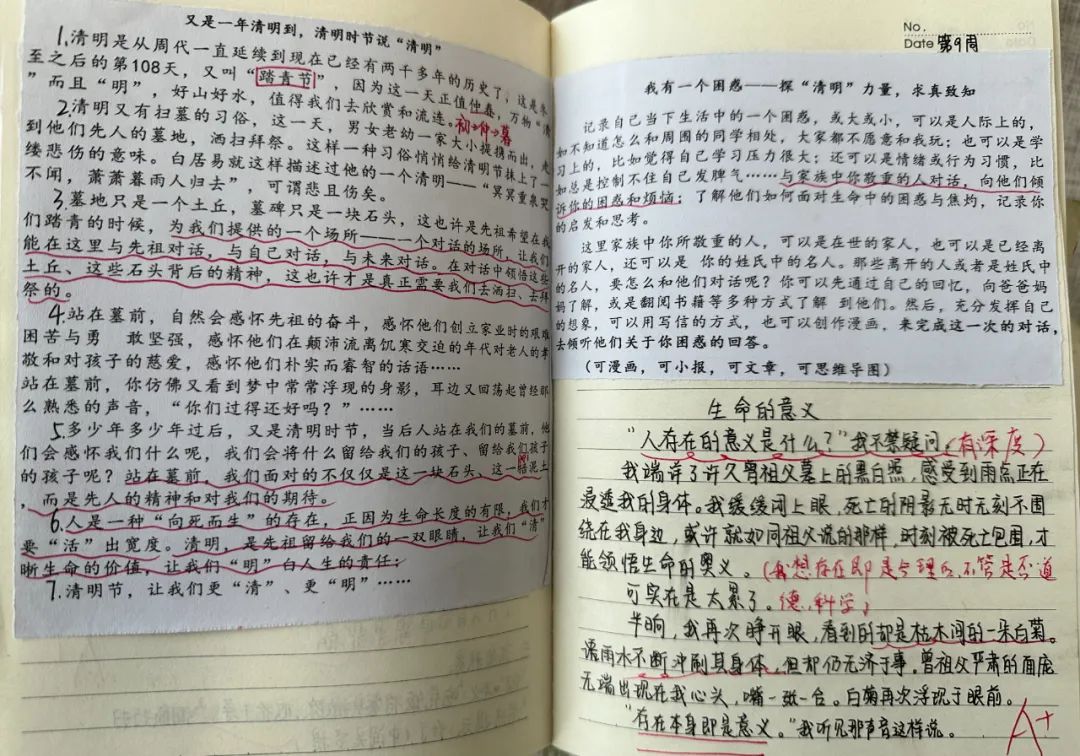 又是一年清明到，清明时节说“清明”
1.清明是从周代一直延续到现在已经有两千多年的历史了，这是冬
至之后的第108天，又叫“踏青节”，因为这一天正值仲春，万物“清
”而且“明”，好山好水，值得我们去欣赏和流连。
初→仲→暮
2.清明又有扫墓的习俗，这一天，男女老幼一家大小提携而出，走
到他们先人的墓地，洒扫拜祭。这样一种习俗悄悄给清明节抹上了一
缕悲伤的意味。白居易就这样描述过他的一个清明——“冥冥重泉哭
不闻，萧萧暮雨人归去”，可谓悲且伤矣。
3.墓地只是一个土丘，墓碑只是一块石头，这也许是先祖希望在我
们踏青的时候，为我们提供的一个场所——一个对话的场所，让我们
能在这里与先祖对话，与自己对话，与未来对话。在对话中领悟这些
土丘、这些石头背后的精神，这也许才是真正需要我们去洒扫、去拜
祭的。
4.站在墓前，自然会感怀先祖的奋斗，感怀他们创立家业时的艰难
困苦与勇 敢坚强，感怀他们在颠沛流离饥寒交迫的年代对老人的孝
敬和对孩子的慈爱，感怀他们朴实而睿智的话语……
站在墓前，你仿佛又看到梦中常常浮现的身影，耳边又回荡起曾经那
么熟悉的声音，“你们过得还好吗？”……
5.多少年多少年过后，又是清明时节，当后人站在我们的墓前，他
们会感怀我们什么呢，我们会将什么留给我们的孩子、留给我们孩子
的孩子呢？站在墓前，我们面对的不仅仅是这一块石头、这一 泥土
，而是先人的精神和对我们的期待。
6.人是一种“向死而生”的存在，正因为生命长度的有限，我们才
要“活”出宽度。清明，是先祖留给我们的一双眼睛，让我们“清”
晰生命的价值，让我们“明”白人生的责任；
7.清明节，让我们更“清”、更“明”……
No.
Date 第9周
我有一个困惑——探“清明”力量，求真致知
记录自己当下生活中的一个困惑，或大或小，可以是人际上的，
如不知道怎么和周围的同学相处，大家都不愿意和我玩；也可以是学
习上的，比如觉得自己学习压力很大；还可以是情绪或行为习惯，比
如总是控制不住自己发脾气……与家族中你敬重的人对话，向他们倾
诉你的困惑和烦恼；了解他们如何面对生命中的困惑与焦灼，记录你
的启发和思考。
这里家族中你所敬重的人，可以是在世的家人，也可以是已经离
开的家人，还可以是 你的姓氏中的名人。那些离开的人或者是姓氏中
的名人，要怎么和他们对话呢？你可以先通过自己的回忆，向爸爸妈
妈了解，或是翻阅书籍等多种方式了解 到他们。然后，充分发挥自己
的想象，可以用写信的方式，也可以创作漫画，来完成这一次的对话，
去倾听他们关于你困惑的回答。
（可漫画，可小报，可文章，可思维导图）
生命的意义
“人存在的意义是什么？”我不禁疑问。（有深度）
我端详了许久曾祖父墓上的黑白照，感受到雨点正在
浸透我的身体。我缓缓闭上眼，死亡的阴影无时无刻不围
绕在我身边，或许就如同祖父说的那样，时刻被死亡包围，才
能领悟生命的奥义。（我想存在即是合理的，不管是否道
可实在是太累了。德，科学）
半晌，我再次睁开眼，看到的却是枯木间的一朵白菊。
雨水不断冲刷其身体，但却仍无济于事。曾祖父严肃的面庞
无端出现在我心头，嘴一张一合。白菊再次浮现于眼前。
“存在本身即是意义。”我听见那声音这样说。
A+